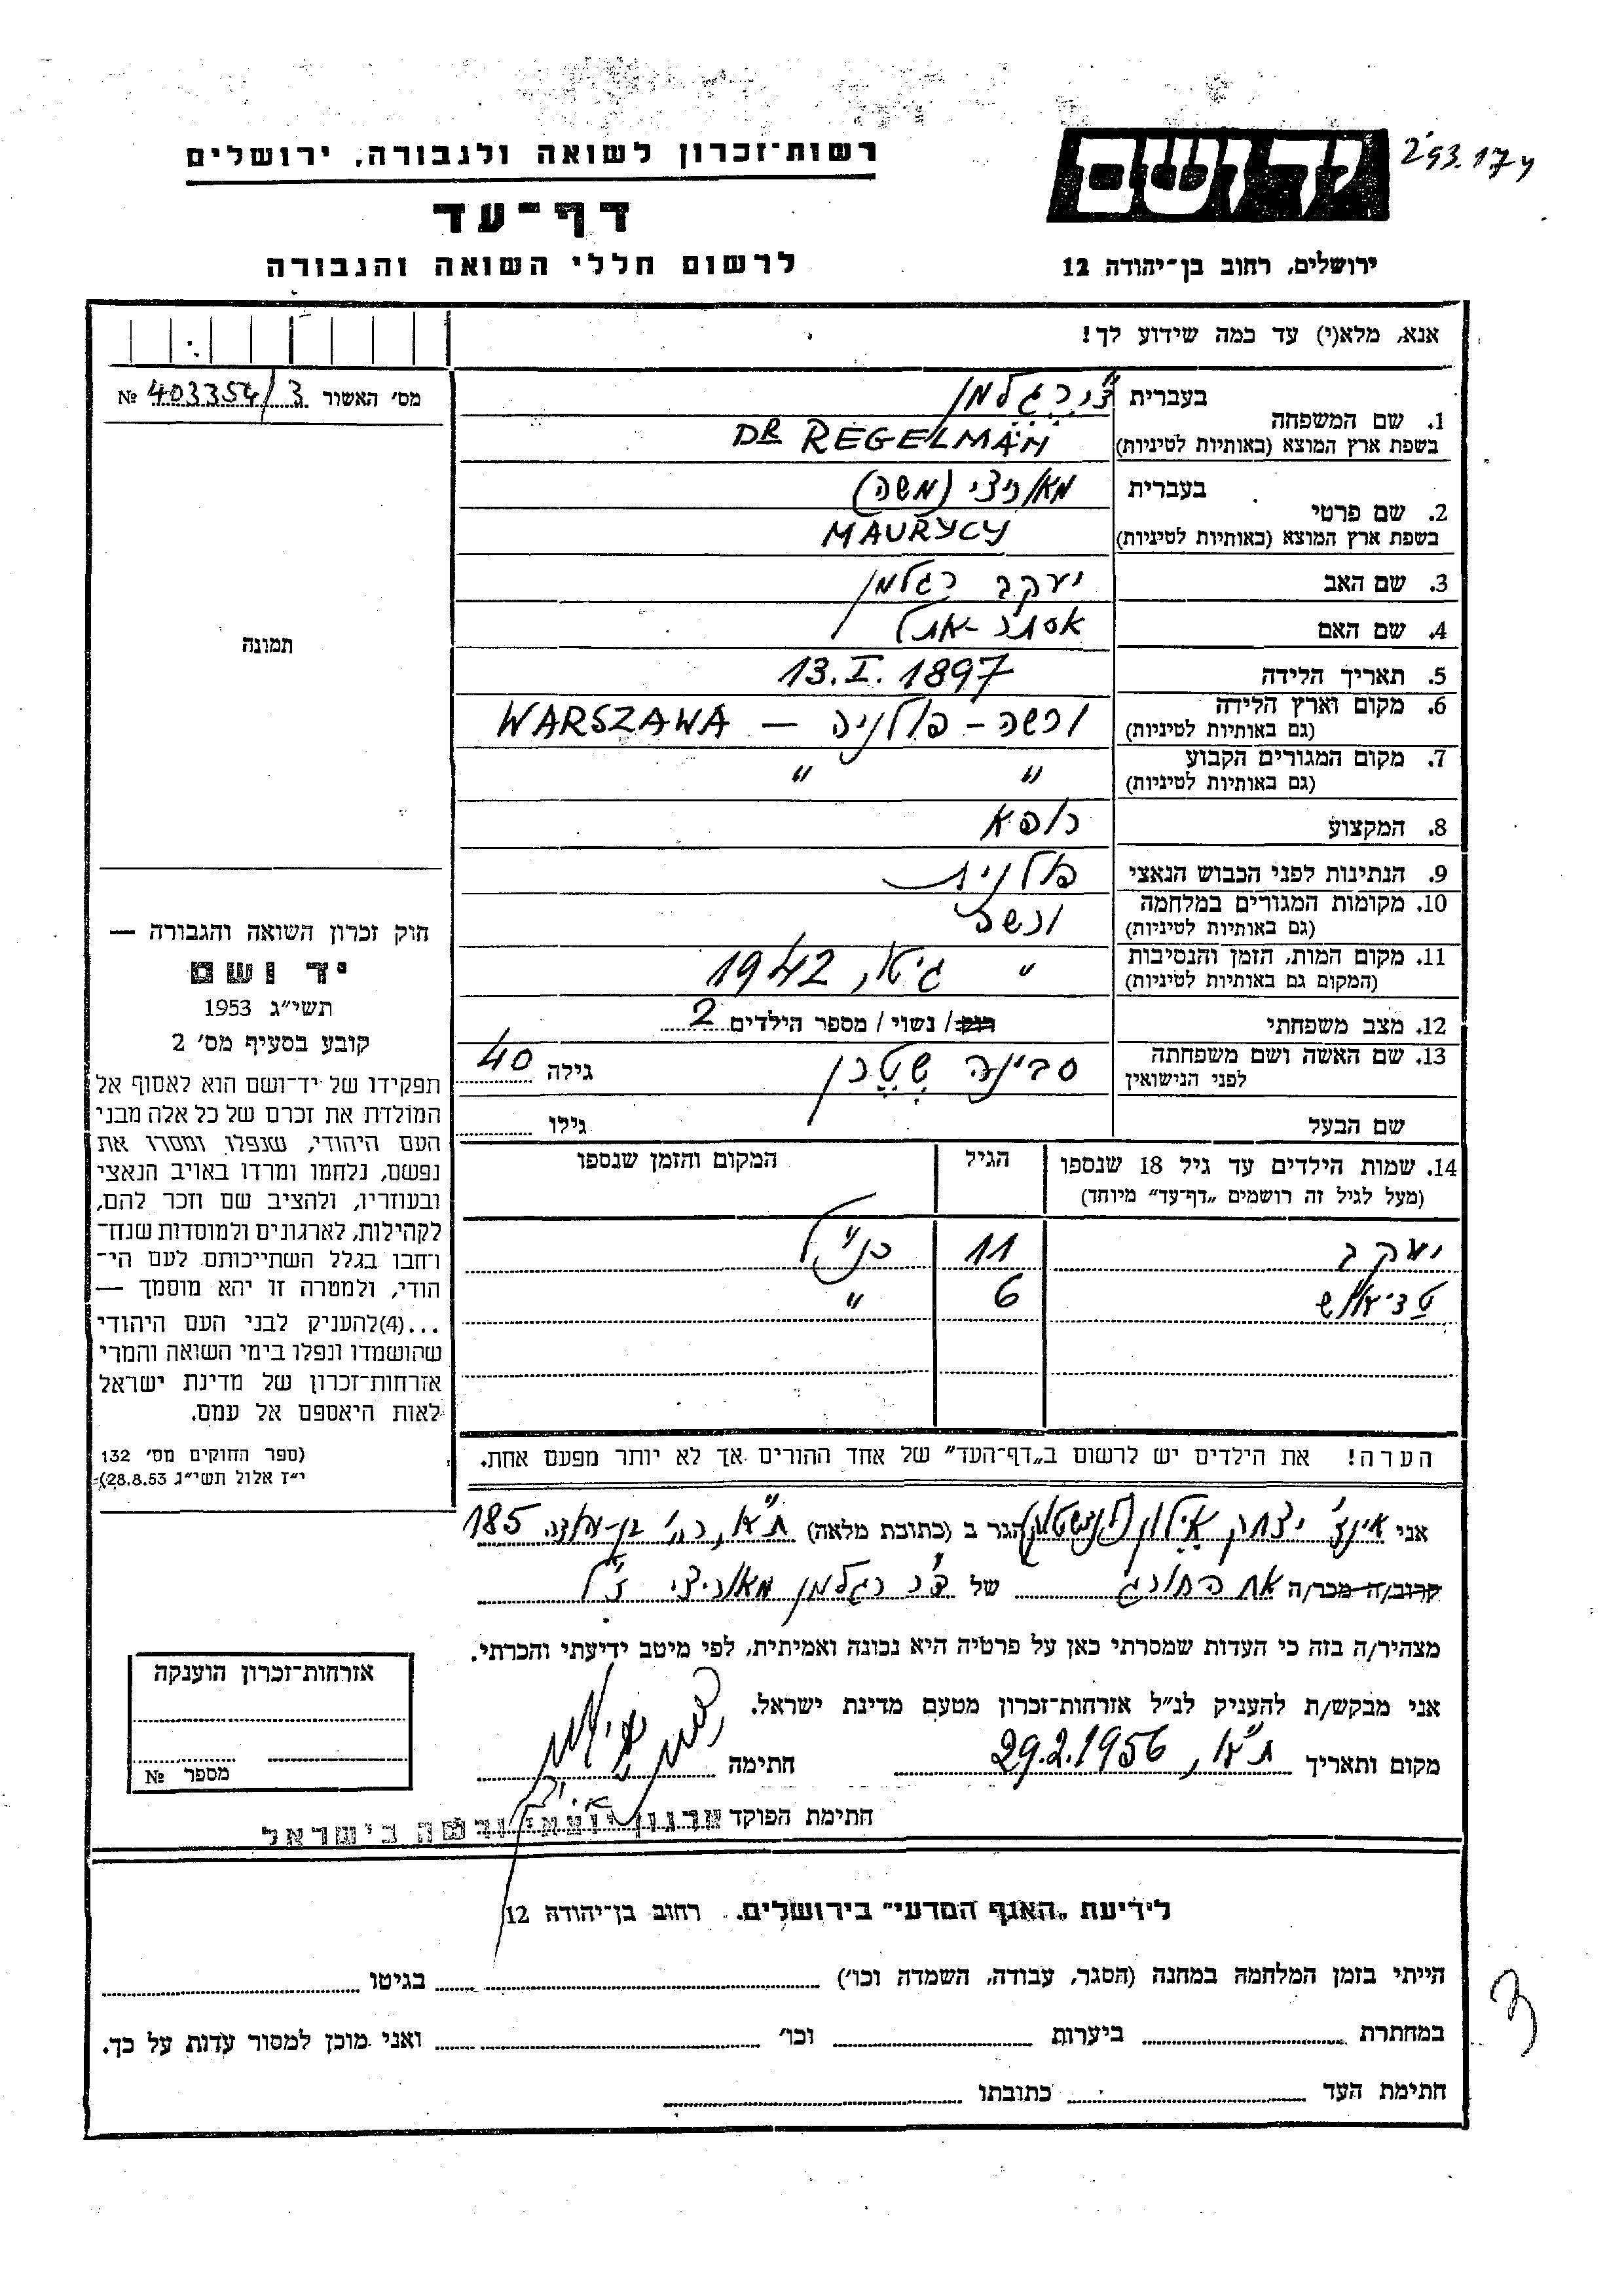 רשות־זכרון לשואה ולגבורה, ירושלים
דף־עד
לרשום חללי השואה והגבורה
יד ושם
ירושלים, רחוב בן־יהודה 12
אנא, מלא(י) עד כמה שידוע לך!
מס׳ האשור 403354/3 №
1. שם המשפחה
בעברית ד״ר רגלמן
בשפת ארץ המוצא (באותיות לטיניות) DR REGELMAN
2. שם פרטי
בעברית מאוריצי (משה)
בשפת ארץ המוצא (באותיות לטיניות) MAURYCY
3. שם האב יעקב רגלמן
4. שם האם אסתר-אתל
5. תאריך הלידה 13.I.1897
6. מקום וארץ הלידה ורשה - פולניה - WARSZAWA
(גם באותיות לטיניות)
7. מקום המגורים הקבוע " "
(גם באותיות לטיניות)
8. המקצוע רופא
9. הנתינות לפני הכבוש הנאצי פולנית
10. מקומות המגורים במלחמה ורשה
(גם באותיות לטיניות)
11. מקום המות, הזמן והנסיבות " גיטו, 1942
(המקום גם באותיות לטיניות)
12. מצב משפחתי רווק / נשוי / מספר הילדים 2
13. שם האשה ושם משפחתה סבינה שטרן גילה 40
לפני הנישואין
שם הבעל גילו
14. שמות הילדים עד גיל 18 שנספו הגיל המקום והזמן שנספו
(מעל לגיל זה רושמים „דף־עד" מיוחד)
יעקב 11 כנ״ל
טדיאוש 6 "
הערה! את הילדים יש לרשום ב„דף־העד" של אחד ההורים אך לא יותר מפעם אחת.
תמונה
חוק זכרון השואה והגבורה —
יד ושם
תשי״ג 1953
קובע בסעיף מס׳ 2
תפקידו של יד־ושם הוא לאסוף אל
המולדת את זכרם של כל אלה מבני
העם היהודי, שנפלו ומסרו את
נפשם, נלחמו ומרדו באויב הנאצי
ובעוזריו, ולהציב שם וזכר להם,
לקהילות, לארגונים ולמוסדות שנח־
רחבו בגלל השתייכותם לעם הי־
הודי, ולמטרה זו יהא מוסמך —
...(4)להעניק לבני העם היהודי
שהושמדו ונפלו בימי השואה והמרי
אזרחות־זכרון של מדינת ישראל
לאות היאספם אל עמם.
(ספר החוקים מס׳ 132
י״ז אלול תשי״ג 28.8.53)
אני אינג׳ יצחק אילון הגר ב (כתובת מלאה) ת״א, רח׳ בן-יהודה 185
קרוב/ה מכר/ה אח החורג של ד״ר רגלמן מאוריצי ז״ל
מצהיר/ה בזה כי העדות שמסרתי כאן על פרטיה היא נכונה ואמיתית, לפי מיטב ידיעתי והכרתי.
אני מבקש/ת להעניק לנ״ל אזרחות־זכרון מטעם מדינת ישראל.
מקום ותאריך ת״א, 29.2.1956 חתימה
חתימת הפוקד ארגון יוצאי ורשה בישראל
אזרחות־זכרון הוענקה
מספר №
לידיעת „האגף המדעי" בירושלים. רחוב בן־יהודה 12
הייתי בזמן המלחמה במחנה (הסגר, עבודה, השמדה וכו׳) בגיטו
במחתרת ביערות וכו׳ ואני מוכן למסור עדות על כך.
חתימת העד כתובתו